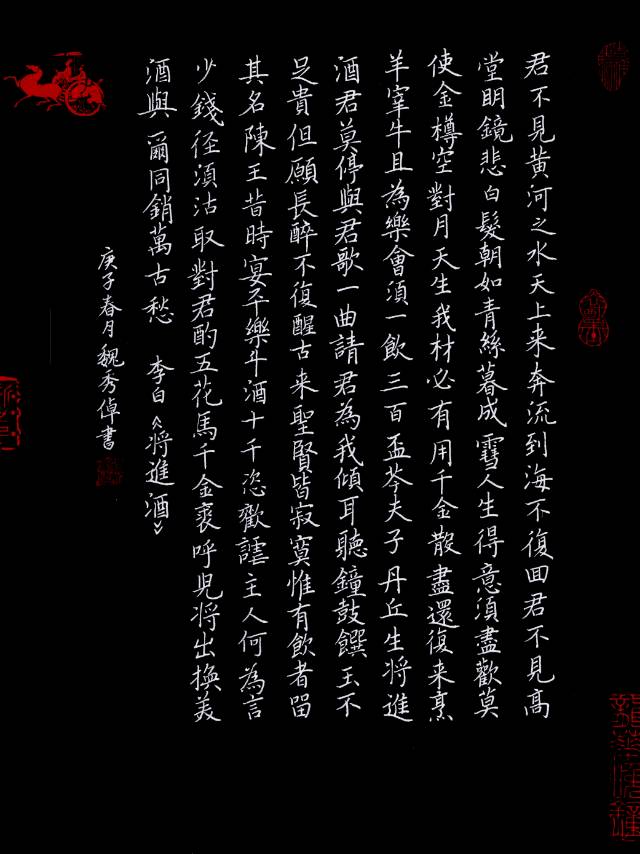 君不見黄河之水天上来奔流到海不復囬君不見髙
堂明鏡悲白髮朝如青絲暮成雪人生得意須盡歡莫
使金樽空對月天生我材必有用千金散盡還復来烹
羊宰牛且為樂會須一飲三百盃岑夫子丹丘生将進
酒君莫停與君歌一曲請君為我傾耳聽鐘鼓饌玉不
足貴但願長醉不復醒古来聖賢皆寂寞惟有飲者留
其名陳王昔時宴平樂斗酒十千恣歡謔主人何為言
少錢径須沽取對君酌五花馬千金裘呼兒将出換美
酒與爾同銷萬古愁 李白《将進酒》
庚子春月魏秀倬書